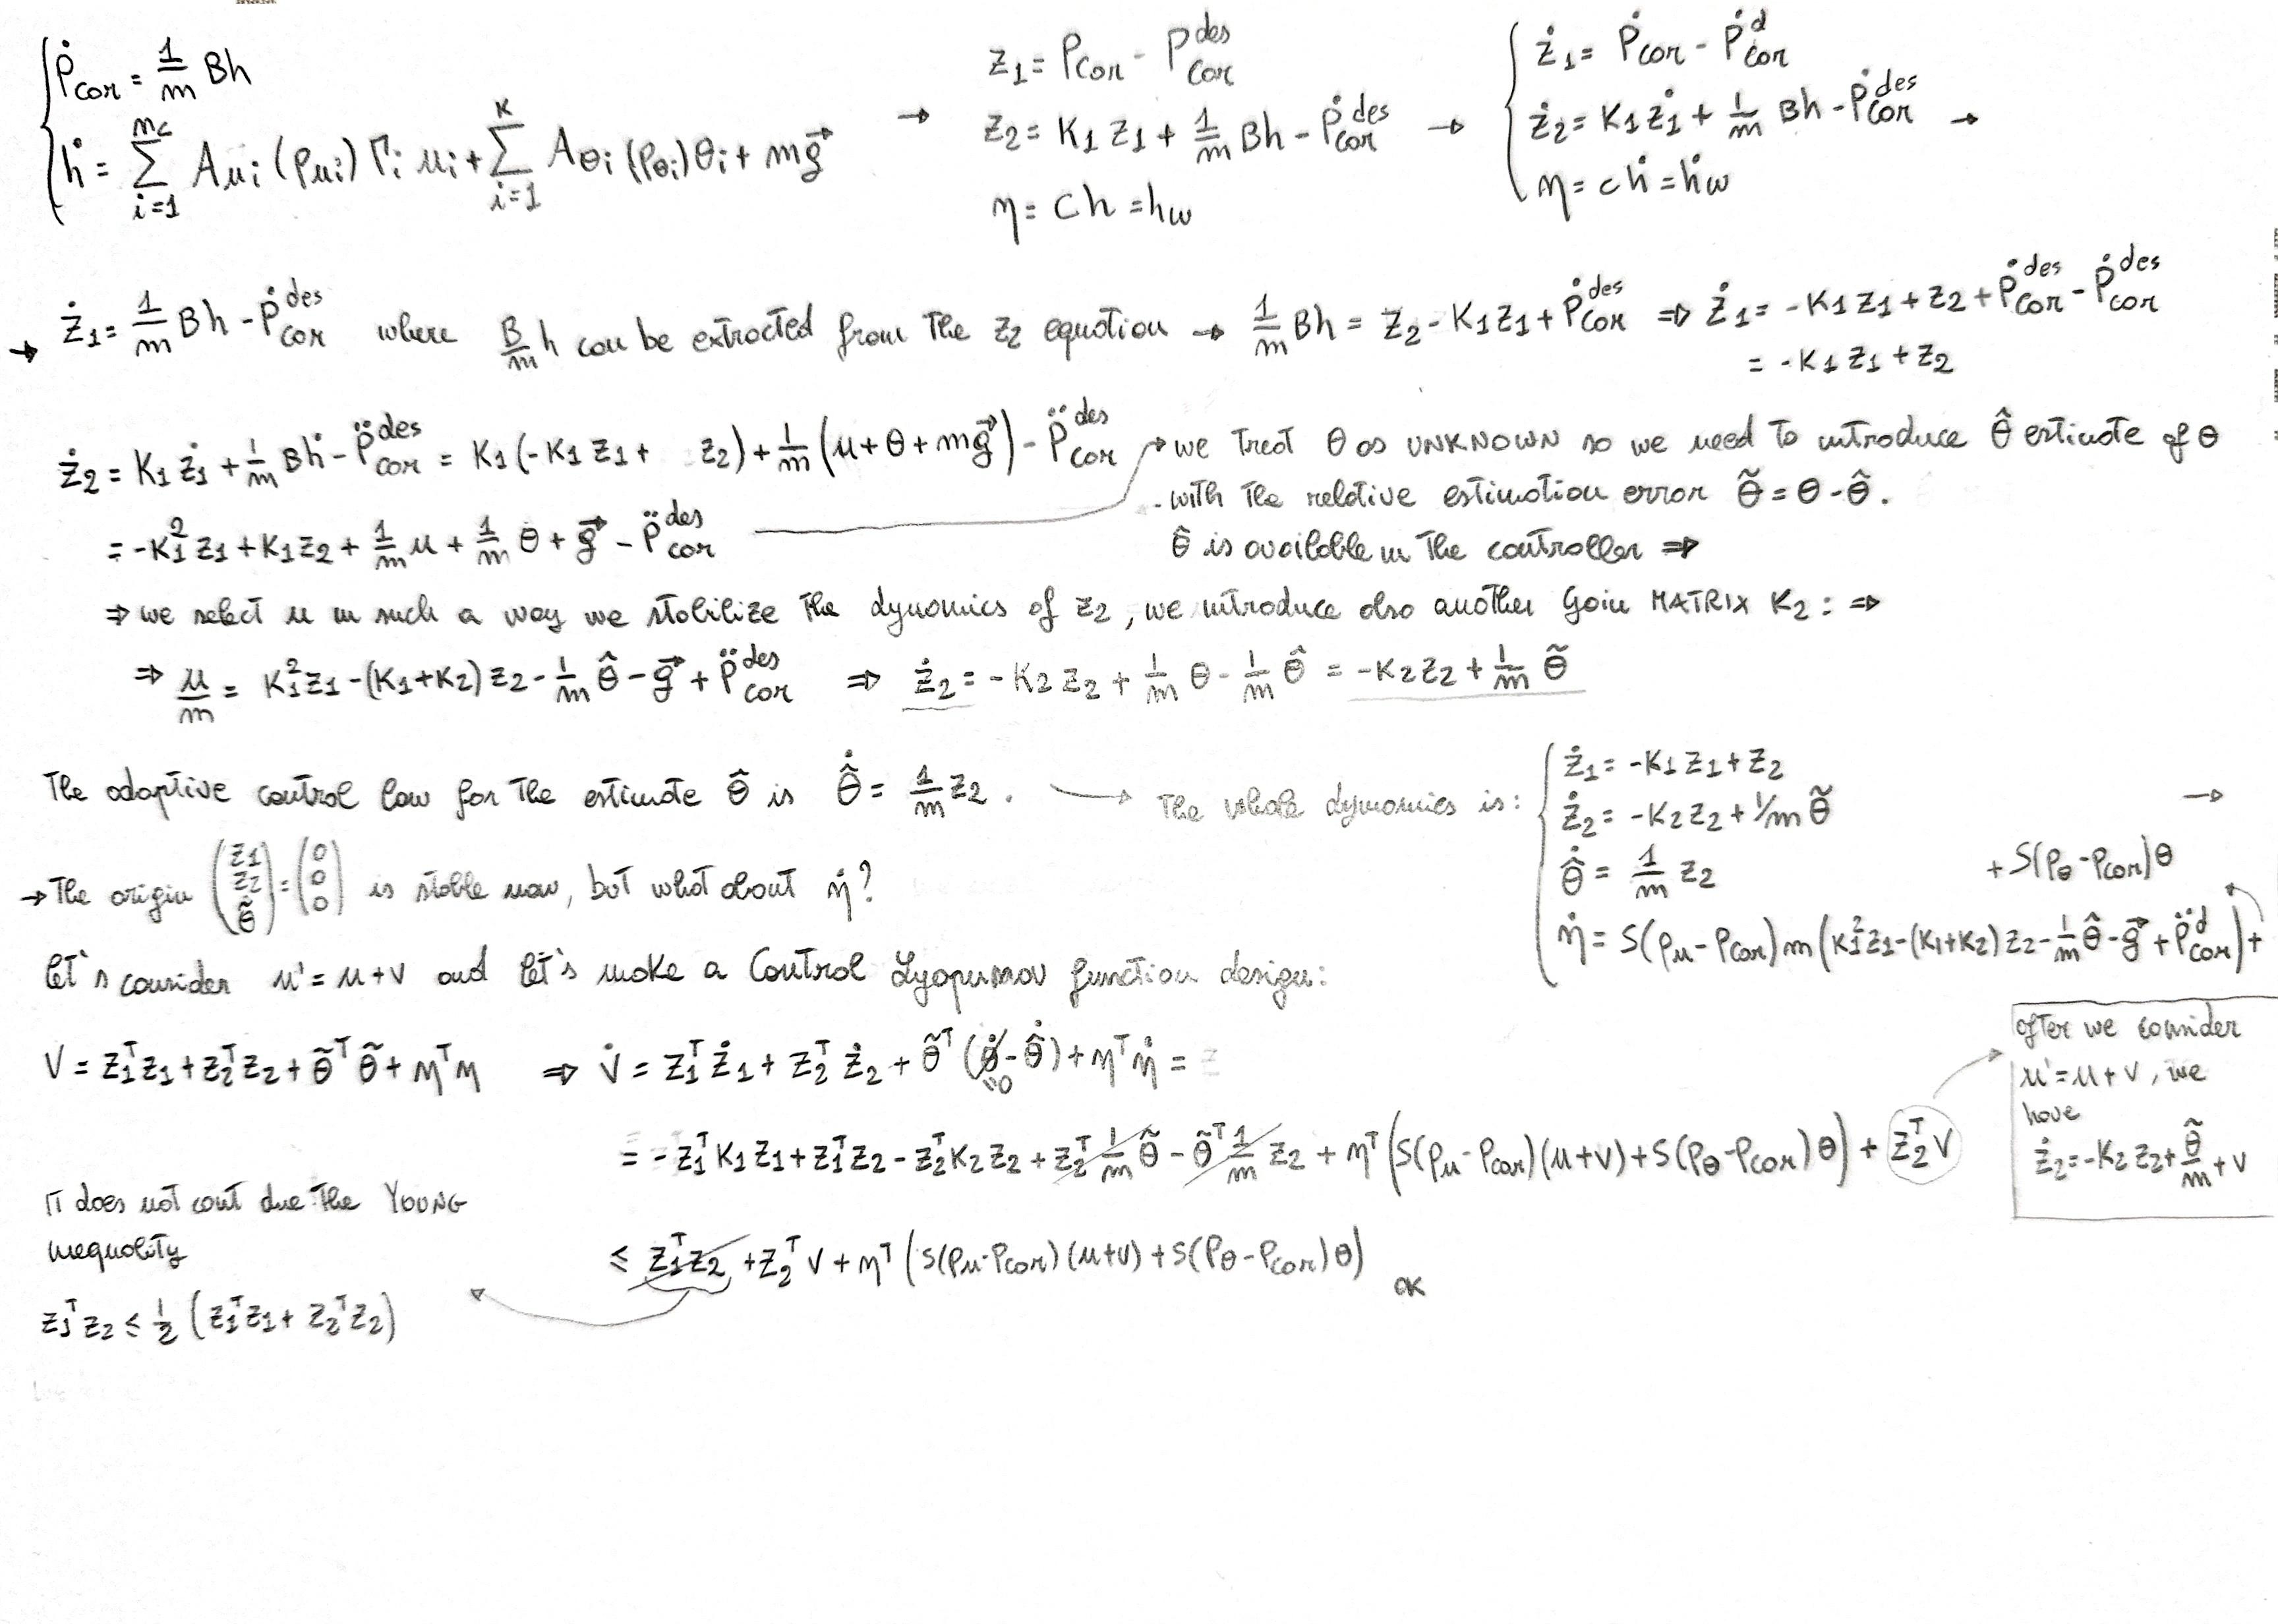 ṗ_COM = 1/m Bh
ḣ = Σ_{i=1}^{n_c} A_{ui}(p_{ui}) Γ_i u_i + Σ_{i=1}^{K} A_{θi}(p_{θi}) θ_i + m g⃗
→ z_1 = P_COM - P_COM^des
z_2 = K_1 z_1 + 1/m Bh - Ṗ_COM^des
η = Ch = h_ω
→ ż_1 = Ṗ_COM - Ṗ_COM^d
ż_2 = K_1 ż_1 + 1/m Bh - Ṗ_COM^des →
η = cḣ = ḣ_ω
→ ż_1 = 1/m Bh - Ṗ_COM^des where B/m h can be extracted from the z_2 equation → 1/m Bh = z_2 - K_1 z_1 + Ṗ_COM^des ⇒ ż_1 = -K_1 z_1 + z_2 + Ṗ_COM^des - Ṗ_COM^des
= -K_1 z_1 + z_2
ż_2 = K_1 ż_1 + 1/m Bḣ - P̈_COM^des = K_1 (-K_1 z_1 + z_2) + 1/m (u + θ + m g⃗) - P̈_COM^des
= -K_1^2 z_1 + K_1 z_2 + 1/m u + 1/m θ + g⃗ - P̈_COM^des
we treat θ as UNKNOWN so we need to introduce θ̂ estimate of θ
with the relative estimation error θ̃ = θ - θ̂.
θ̂ is available in the controller ⇒
⇒ we select u in such a way we stabilize the dynamics of z_2, we introduce also another Gain MATRIX K_2: ⇒
⇒ u/m = K_1^2 z_1 - (K_1+K_2) z_2 - 1/m θ̂ - g⃗ + P̈_COM^des ⇒ ż_2 = -K_2 z_2 + 1/m θ - 1/m θ̂ = -K_2 z_2 + 1/m θ̃
The adaptive control law for the estimate θ̂ is θ̂̇ = 1/m z_2 . → The whole dynamics is:
ż_1 = -K_1 z_1 + z_2
ż_2 = -K_2 z_2 + 1/m θ̃ →
θ̂̇ = 1/m z_2
+ S(p_θ - p_COM) θ
η̇ = S(p_u - p_COM) m (K_1^2 z_1 - (K_1+K_2) z_2 - 1/m θ̂ - g⃗ + P̈_COM^d) +
→ The origin (z_1 z_2 θ̃) = (0 0 0) is stable now, but what about η̇?
let's consider u' = u + v and let's make a Control Lyapunov function design:
V = z_1^T z_1 + z_2^T z_2 + θ̃^T θ̃ + η^T η ⇒ V̇ = z_1^T ż_1 + z_2^T ż_2 + θ̃^T (θ̇ - θ̂̇) + η^T η̇ =
= - z_1^T K_1 z_1 + z_1^T z_2 - z_2^T K_2 z_2 + z_2^T 1/m θ̃ - θ̃^T 1/m z_2 + η^T (S(p_u - p_COM)(u+v) + S(p_θ - p_COM) θ) + z_2^T v
after we consider
u' = u + v, we
have
ż_2 = -K_2 z_2 + θ̃/m + v
≤ z_1^T z_2 + z_2^T v + η^T (S(p_u - p_COM)(u+v) + S(p_θ - p_COM) θ)
IT does not cont due the YOUNG
inequality
z_1^T z_2 ≤ 1/2 (z_1^T z_1 + z_2^T z_2)